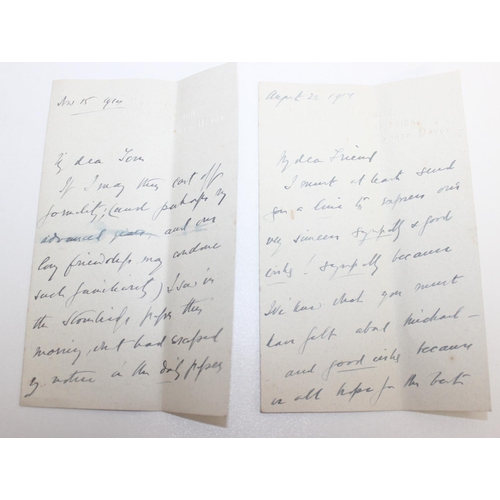 Nov 15 1914
My dear Tom
If I may thus cast off
formality, (and perhaps my
advanced years, and our
long friendship may condone
such familiarity) I saw in
the Stourbridge paper this
morning, what had escaped
my notice in the daily papers
August 22 1914
My dear Friend
I must at least send
you a line to express our
very sincere sympathy & good
wishes! Sympathy because
We know what you must
have felt about Michael -
and good wishes because
we all hope for the best